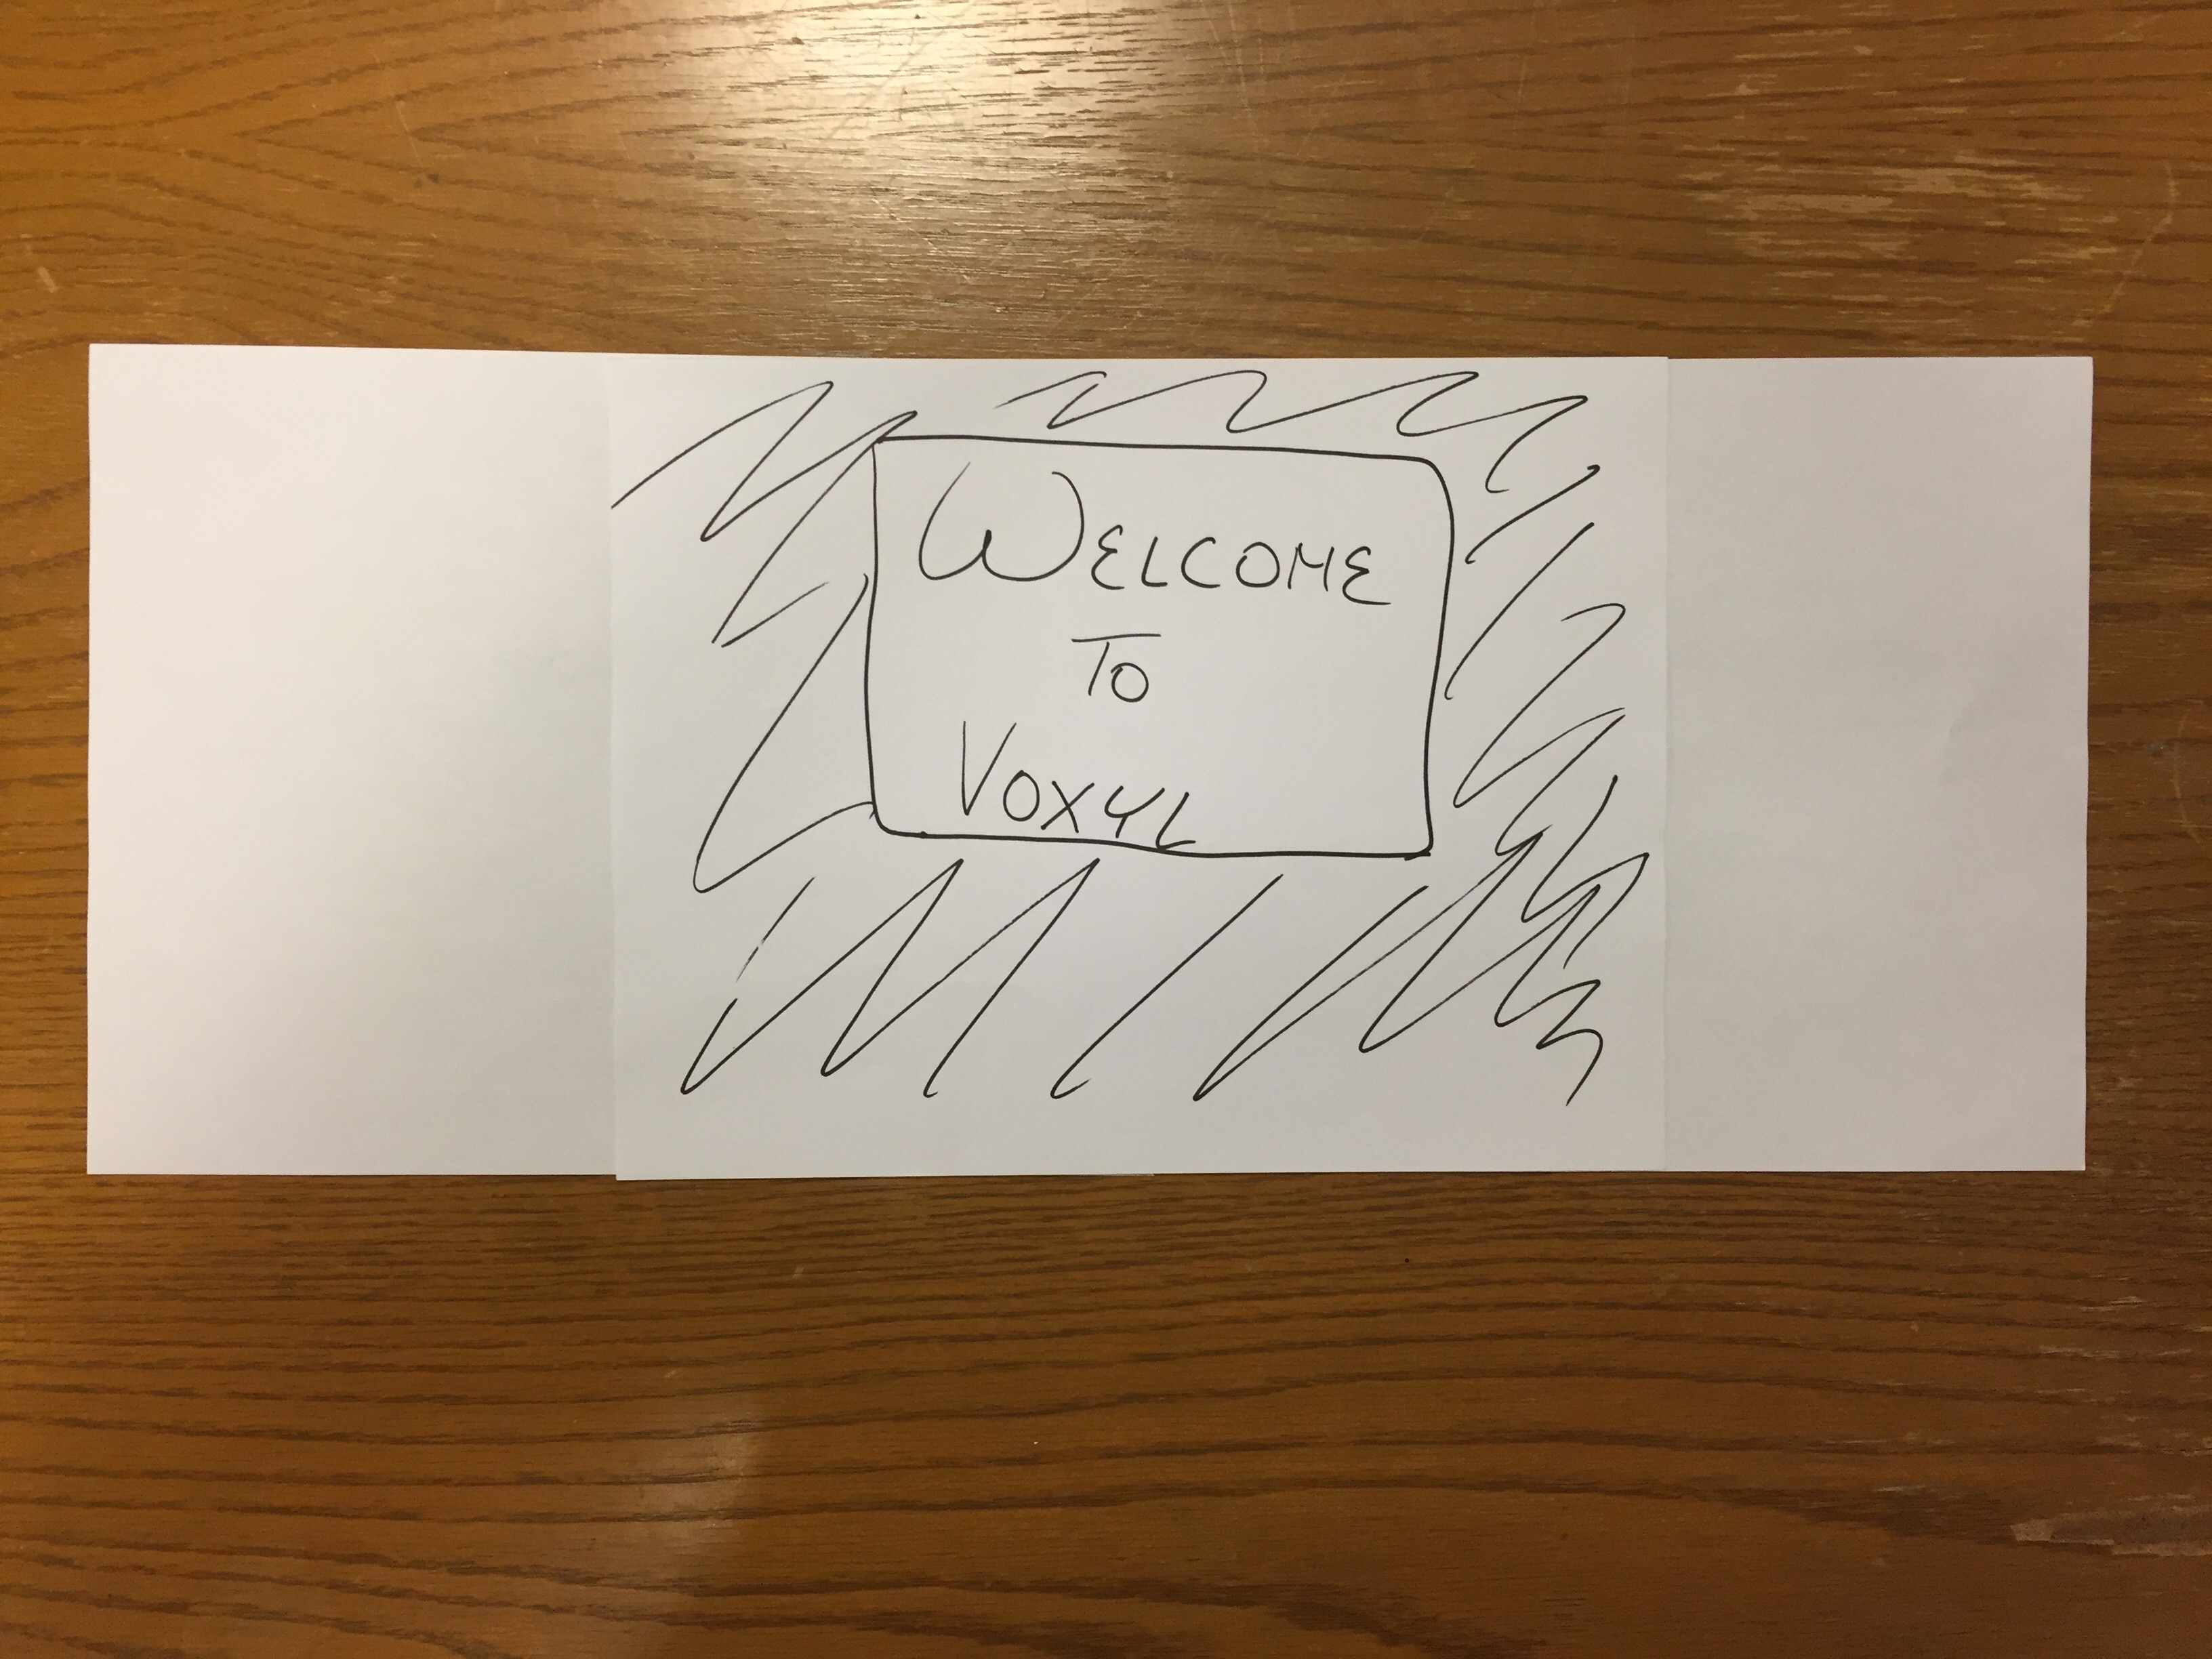 WELCOME
TO
VOXYL